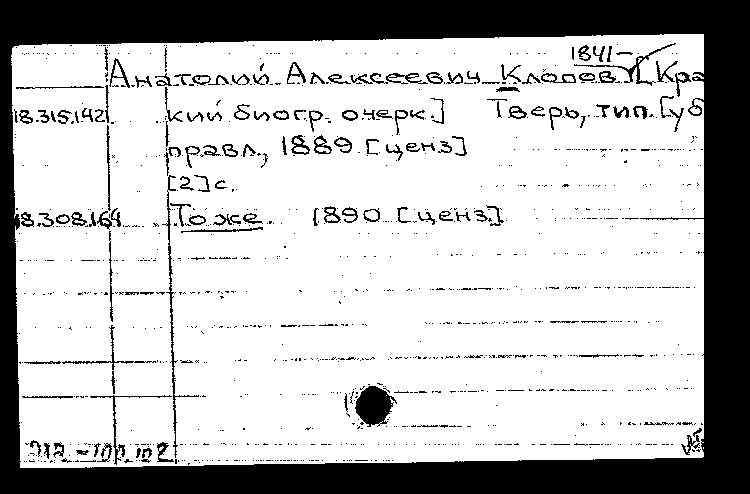 1841-
Анатолий Алексеевич Клопов [Кра
18.315.142 кий биогр. очерк.] Тверь, тип. [уб
правл., 1889 [ценз]
[2] с.
18.308.164 То же. 1890 [ценз]